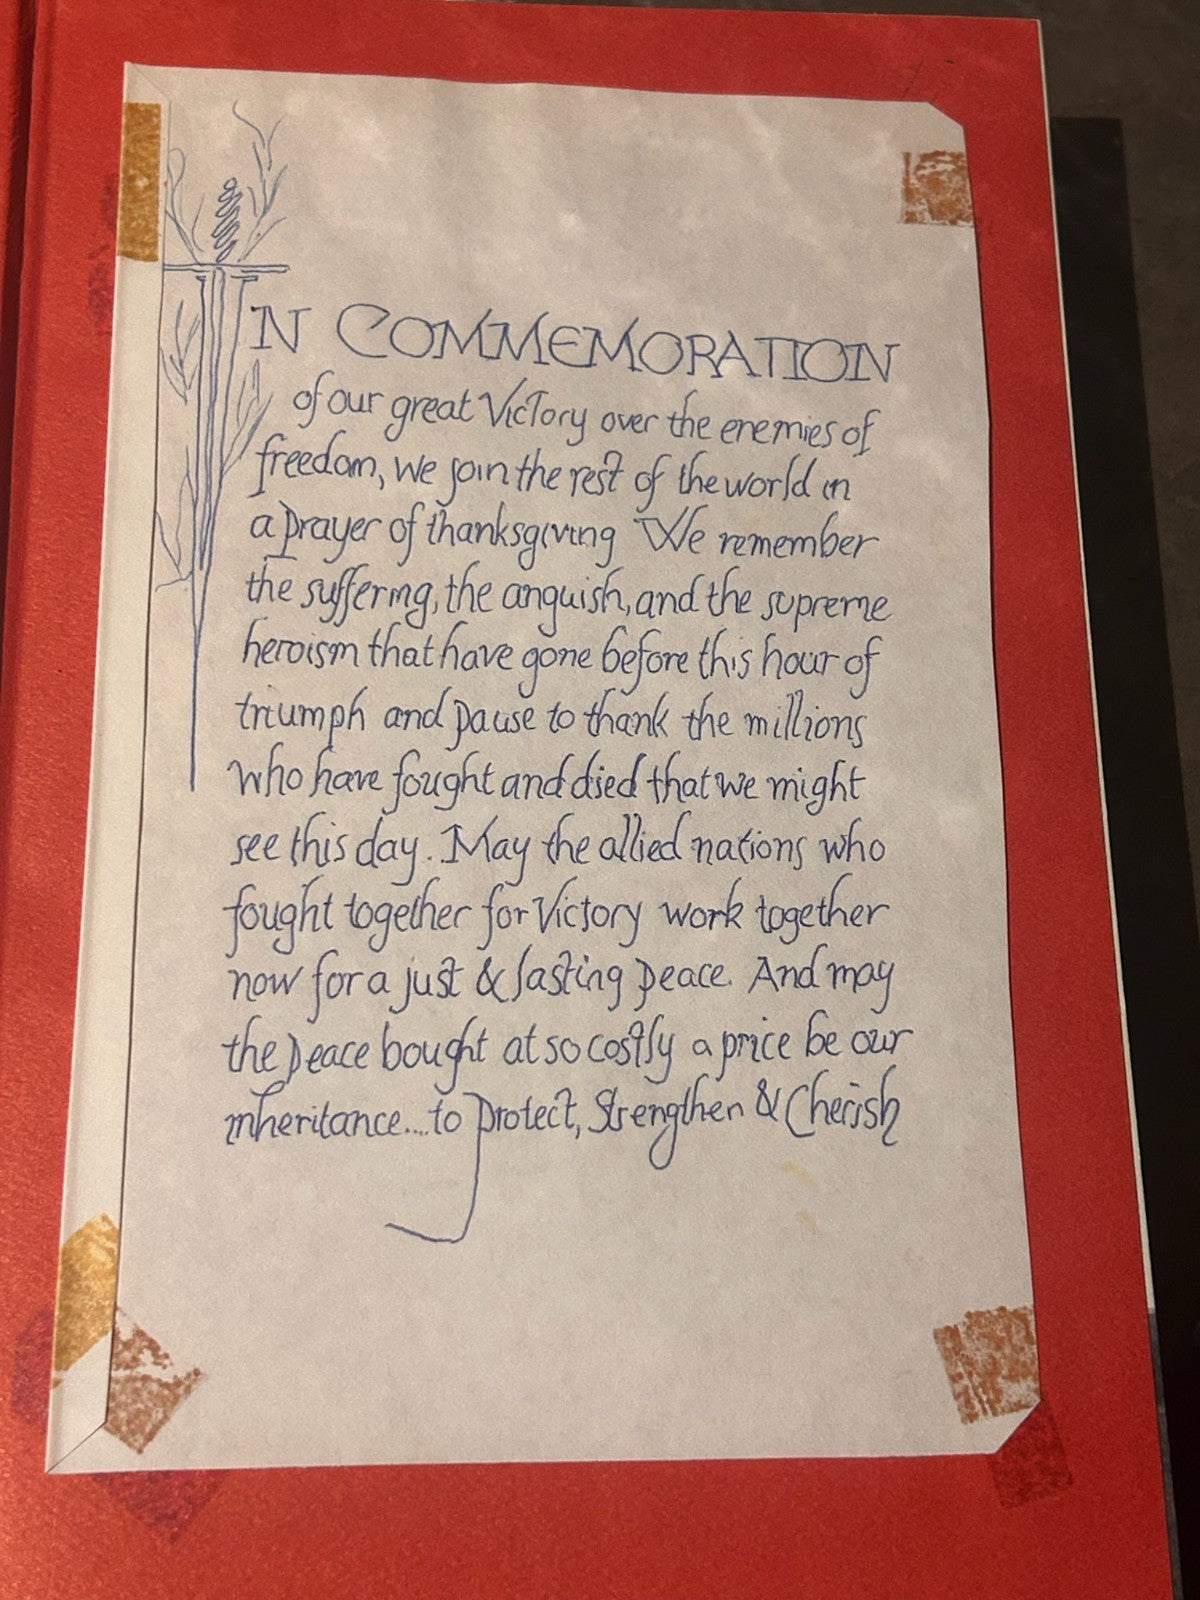 IN COMMEMORATION
of our great Victory over the enemies of
freedom, we join the rest of the world in
a prayer of thanksgiving We remember
the suffering, the anguish, and the supreme
heroism that have gone before this hour of
triumph and pause to thank the millions
who have fought and died that we might
see this day. May the allied nations who
fought together for Victory work together
now for a just & lasting peace. And may
the peace bought at so costly a price be our
inheritance.... to protect, Strengthen & Cherish